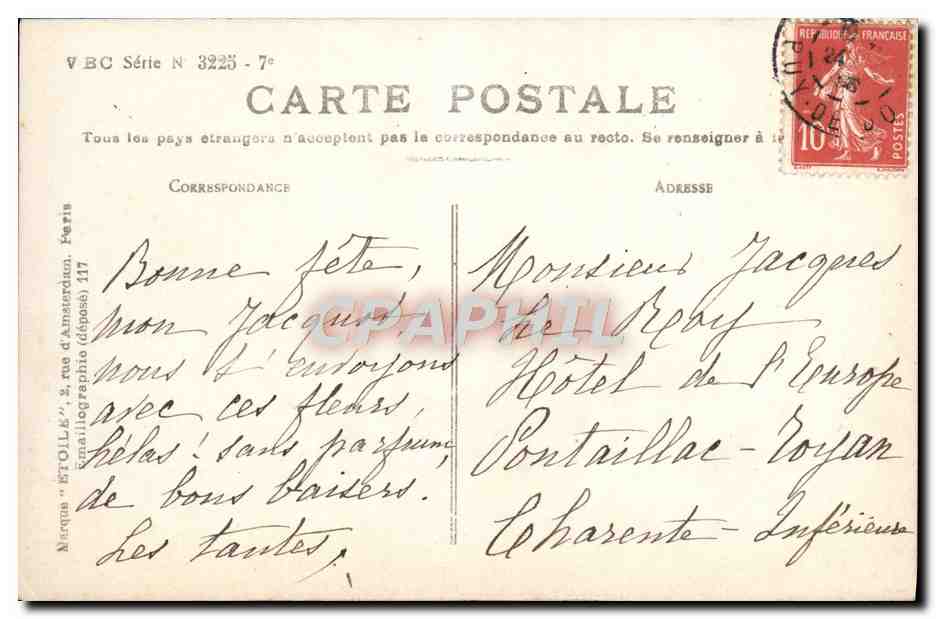 VBC Série N° 3225 - 7e
CARTE POSTALE
Tous les pays étrangers n'acceptent pas la correspondance au recto. Se renseigner à
CORRESPONDANCE
ADRESSE
REPUBLIQUE FRANÇAISE
10
POSTES
Marque "ETOILE", 2, rue d'Amsterdam. Paris
Emaillographie (déposé) 117
Bonne fête,
mon Jacquot
nous t'envoyons
avec ces fleurs,
hélas! sans parfum,
de bons baisers.
Les tantes.
Monsieur Jacques
Le Roy
Hôtel de l'Europe
Pontaillac - Royan
Charente-Inférieure
CPAPHIL